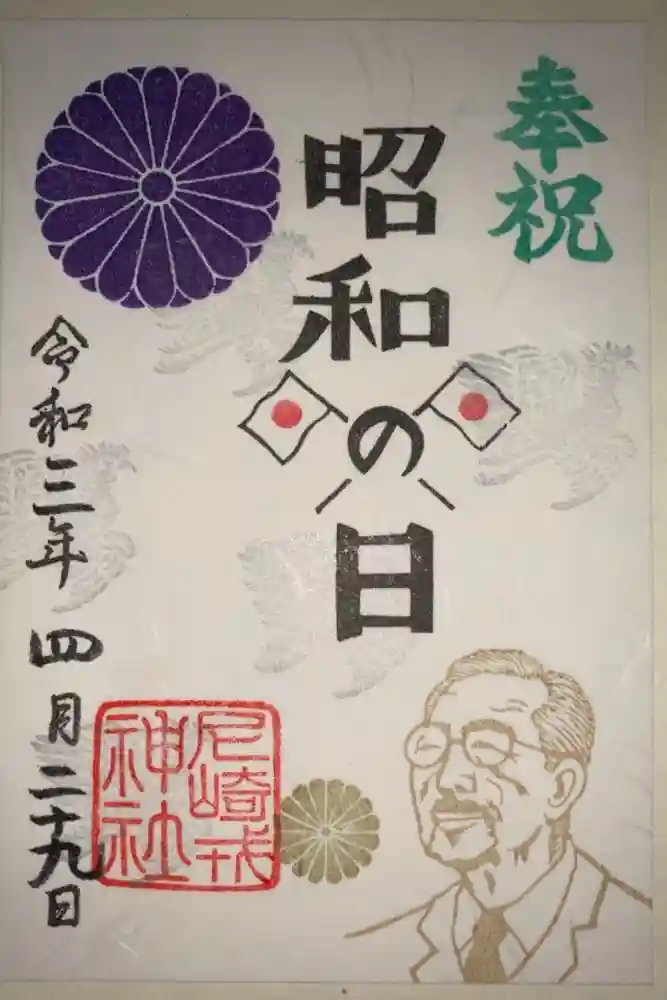 奉祝
昭和の日
令和三年 四月二十九日
尼崎戎
神社